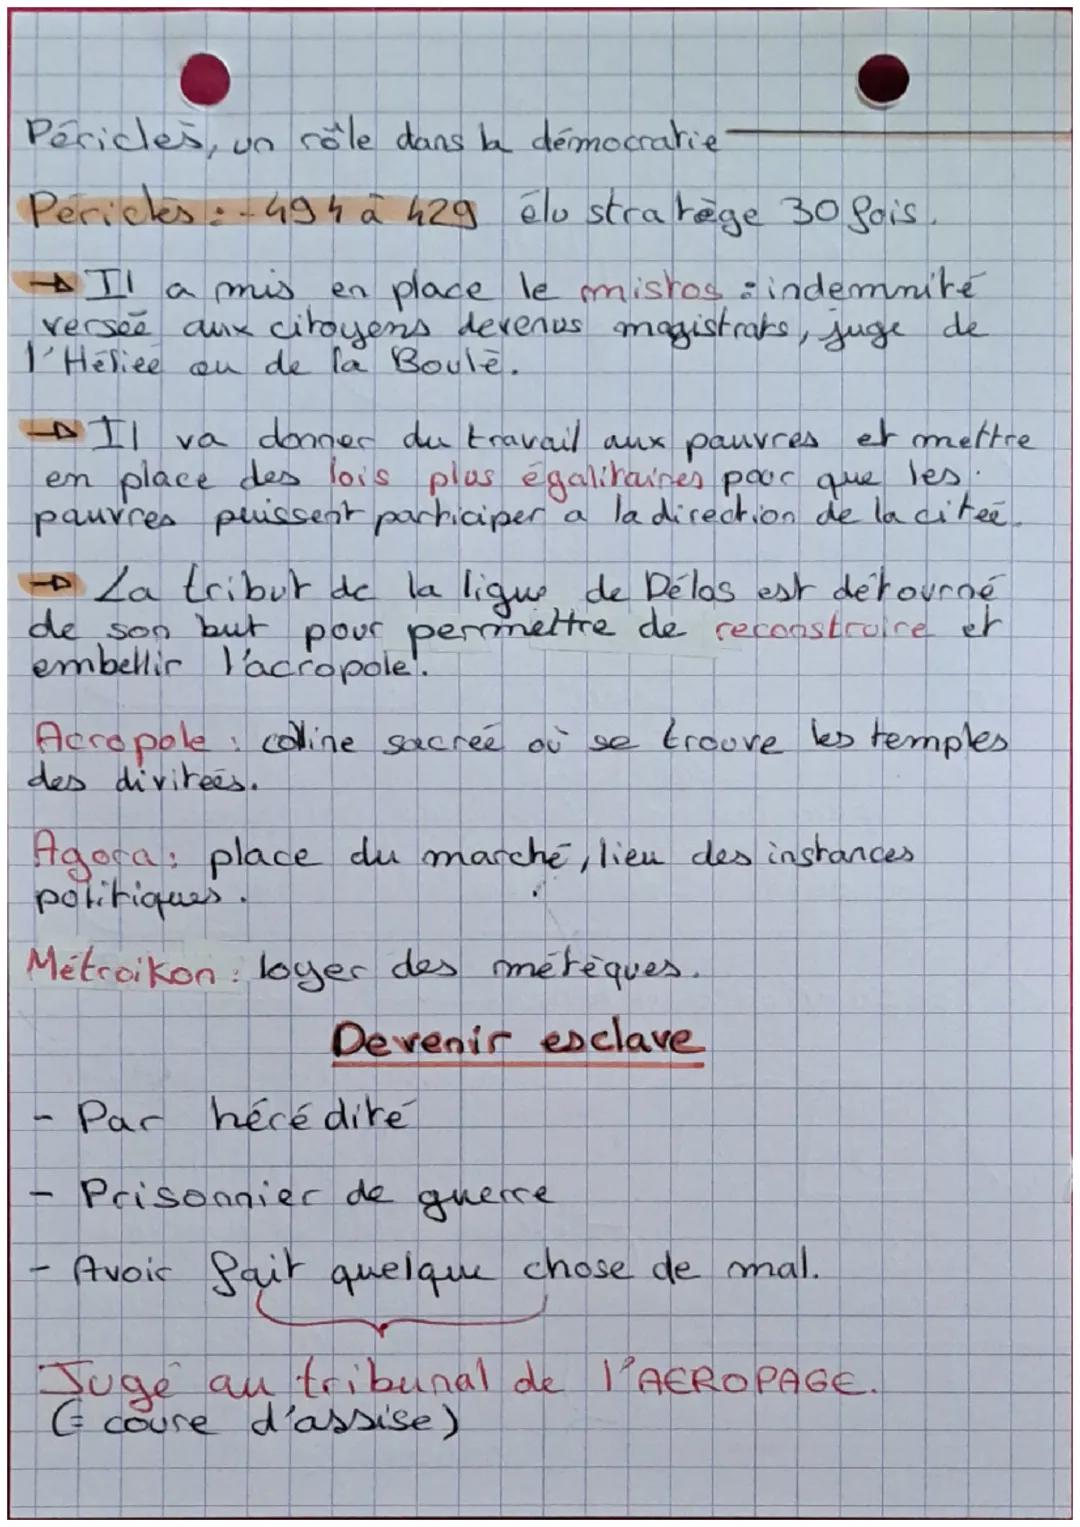 Périclès, un rôle dans la démocratie
Périclès : -494 à 429 élu stratège 30 fois.
→ Il a mis en place le mistos : indemnité
versée aux citoyens devenus magistrats, juge de
l'Héliée ou de la Boulè.
→ Il va donner du travail aux pauvres et mettre
en place des lois plus égalitaires pour que les
pauvres puissent participer a la direction de la citeé.
→ La tribut de la ligue de Délos est détourné
de son but pour permettre de reconstruire et
embellir l'acropole.
Acropole : colline sacrée où se trouve les temples
des divitées.
Agora : place du marché, lieu des instances
politiques.
Métroikon : loyer des métèques.
Devenir esclave
- Par hérédité
- Prisonnier de guerre
- Avoir fait quelque chose de mal.
Jugé au tribunal de l'AEROPAGE.
(= coure d'assise)